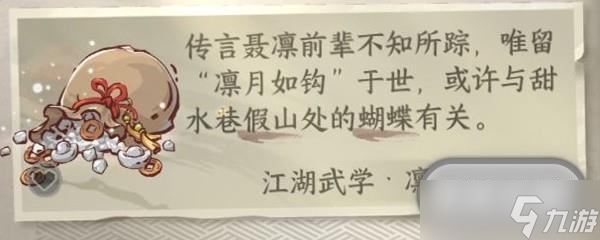 传言聂凛前辈不知所踪，唯留
“凛月如钩”于世，或许与甜
水巷假山处的蝴蝶有关。
江湖武学·凛
九游